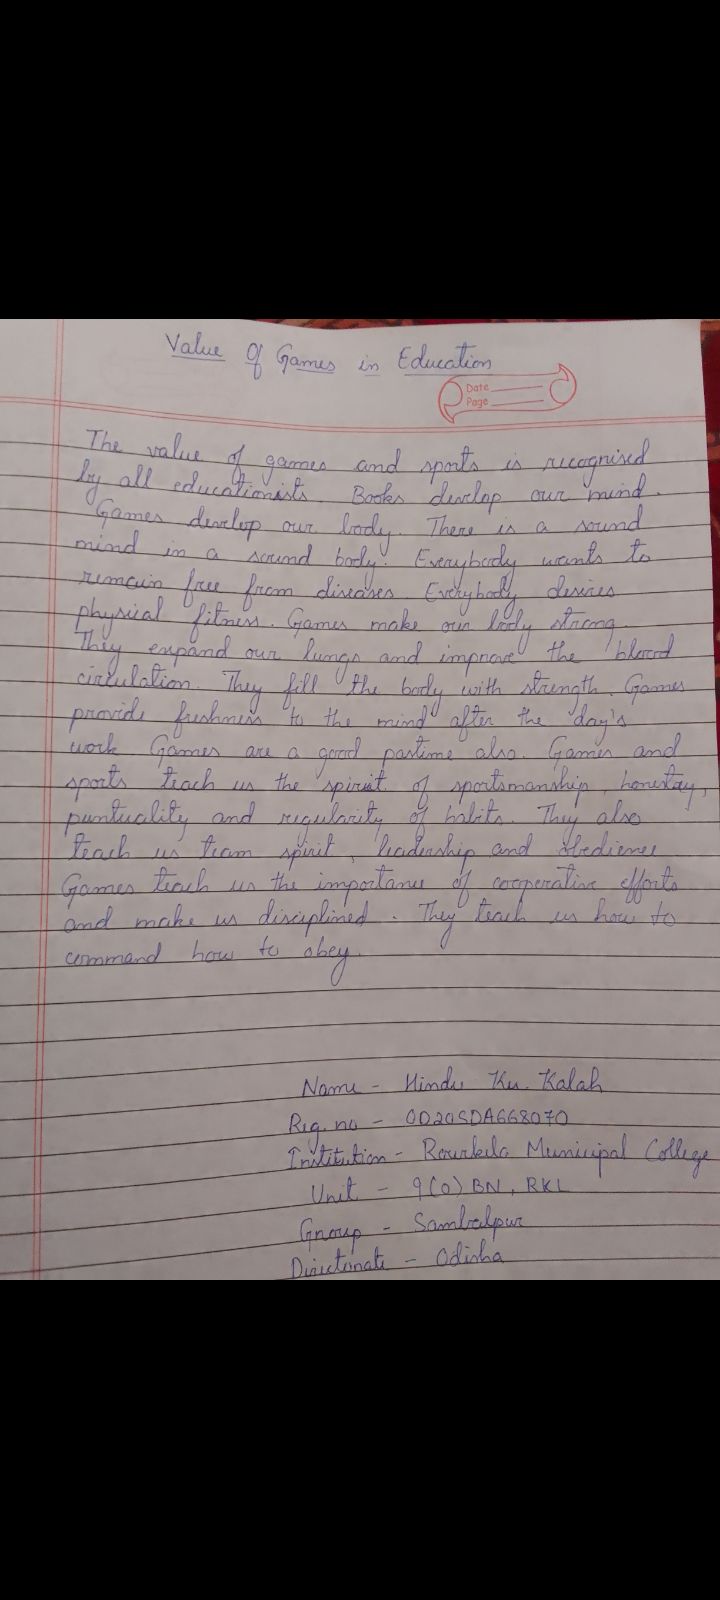 Value Of Games in Education
Date
Page
The value of games and sports is recognised
by all educationists Books develop our mind.
Games develop our body. There is a sound
mind in a sound body. Everybody wants to
remain free from diseases. Everybody desires
physical fitness. Games make our body strong.
They expand our lungs and improve the blood
circulation. They fill the body with strength. Games
provide freshness to the mind after the day's
work Games are a good pastime also. Games and
sports teach us the spirit of sportsmanship, honestay,
puntuality and regularity of habits. They also
teach us team spirit, leadership and obedience
Games teach us the importance of cooperative efforts
and make us disciplined. They teach us how to
command how to obey.
Name - Hindu Ku. Kalah
Reg. no - OD20SDA668070
Institution - Rourkela Municipal College
Unit - 9(O) BN, RKL
Group - Sambalpur
Directorate - Odisha